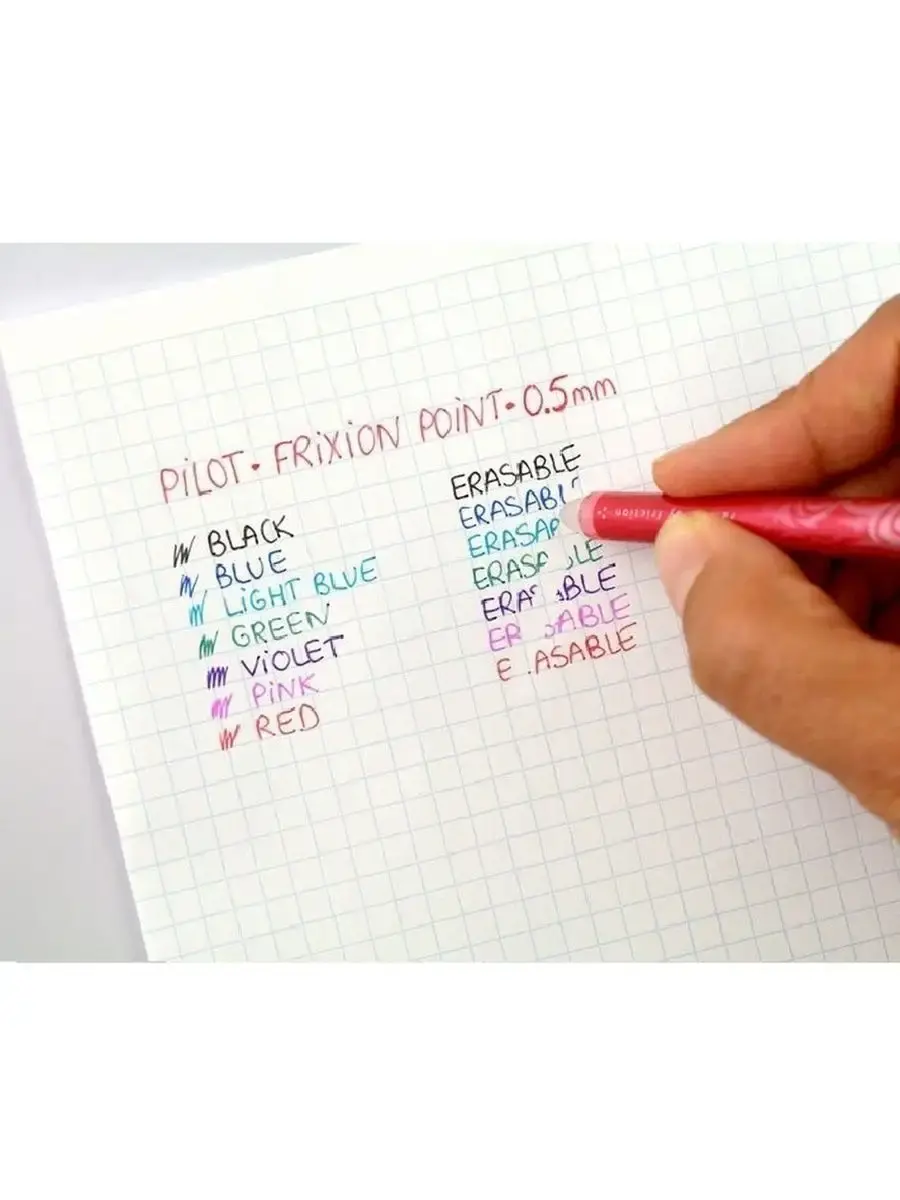 PiLOT · FRiXiON POiNT · 0.5mm
BLACK
BLUE
LiGHT BLUE
GREEN
ViOLET
PiNK
RED
ERASABLE
ERASABL
ERASA
ERAS LE
ERA BLE
ER ABLE
E ASABLE